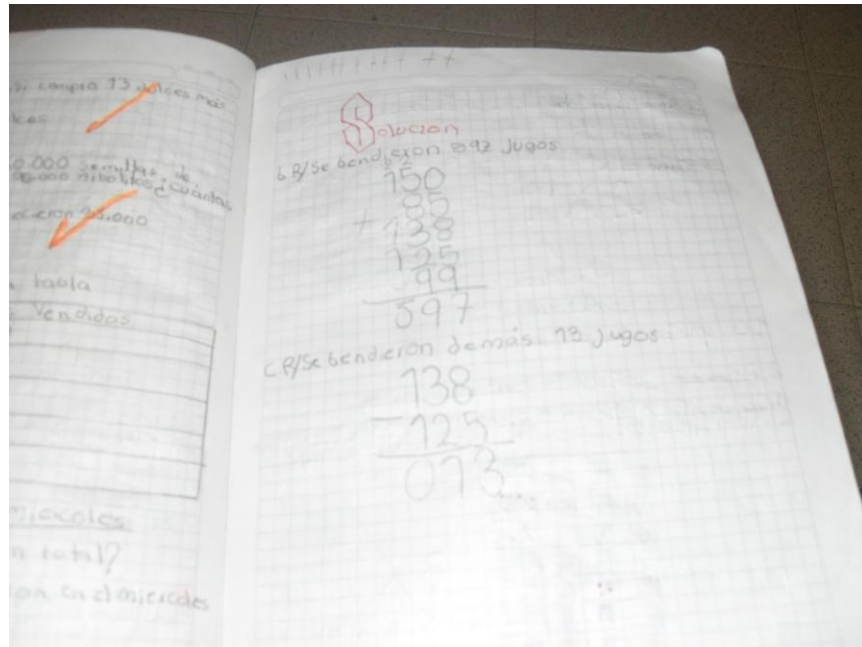 compra 13 dulces más
0.000 semillas de
cuántas
25.000
tabla
Vendidos
total?
en el miercoles
Solucion
b R/Se bendieron 592 jugos
150
85
+ 138
125
99
597
C R/Se bendieron demás 13 jugos
138
- 125
013